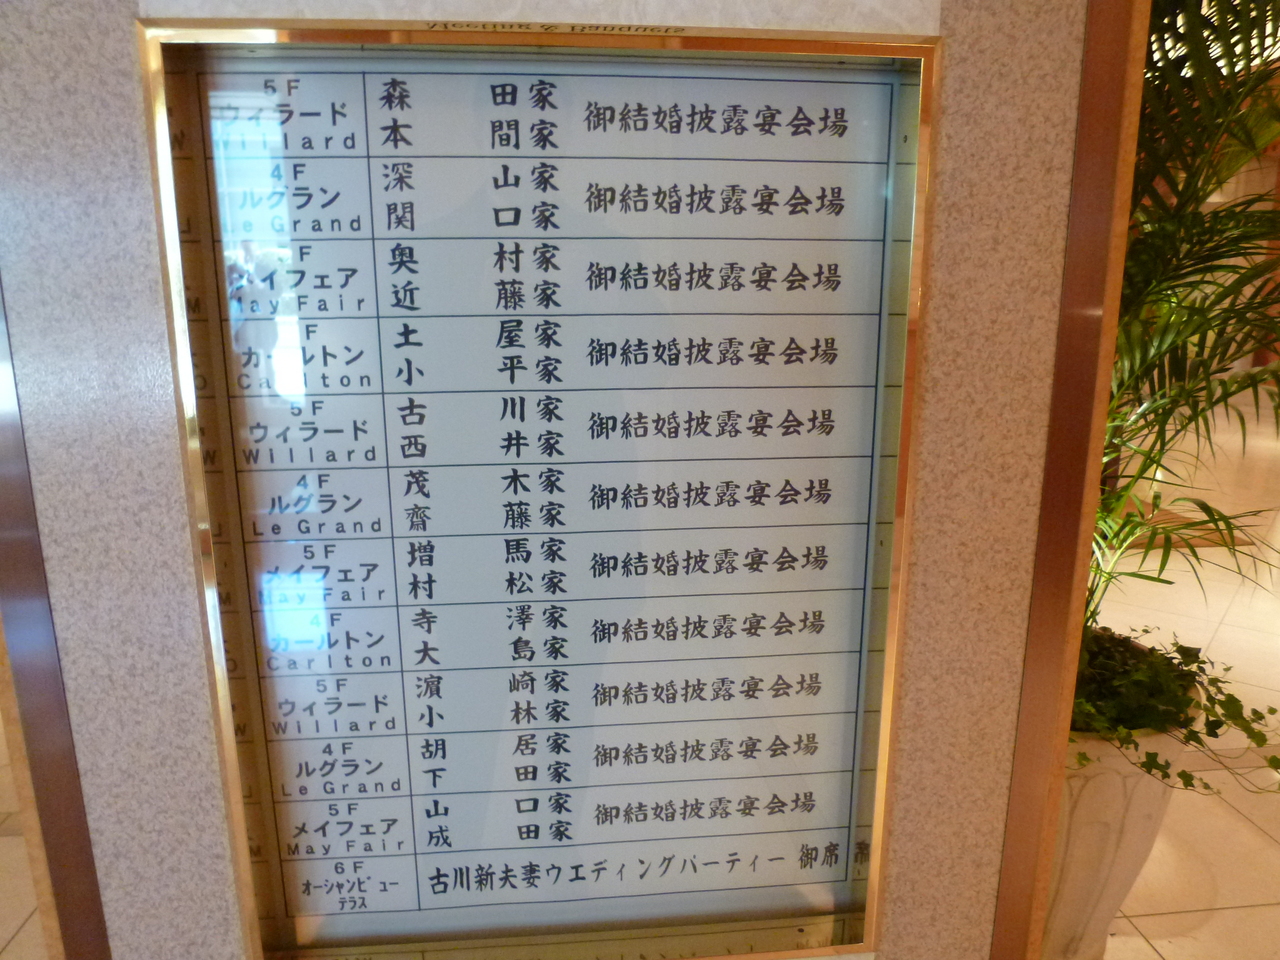 Meeting & Banquets
5F
ウィラード
Willard
森 田家
本 間家
御結婚披露宴会場
4F
ルグラン
Le Grand
深 山家
関 口家
御結婚披露宴会場
F
メイフェア
May Fair
奥 村家
近 藤家
御結婚披露宴会場
F
カールトン
Carlton
土 屋家
小 平家
御結婚披露宴会場
5F
ウィラード
Willard
古 川家
西 井家
御結婚披露宴会場
4F
ルグラン
Le Grand
茂 木家
齋 藤家
御結婚披露宴会場
5F
メイフェア
May Fair
増 馬家
村 松家
御結婚披露宴会場
4F
カールトン
Carlton
寺 澤家
大 島家
御結婚披露宴会場
5F
ウィラード
Willard
濵 崎家
小 林家
御結婚披露宴会場
4F
ルグラン
Le Grand
胡 居家
下 田家
御結婚披露宴会場
5F
メイフェア
May Fair
山 口家
成 田家
御結婚披露宴会場
6F
オーシャンビュー
テラス
古川新夫妻ウエディングパーティー 御席